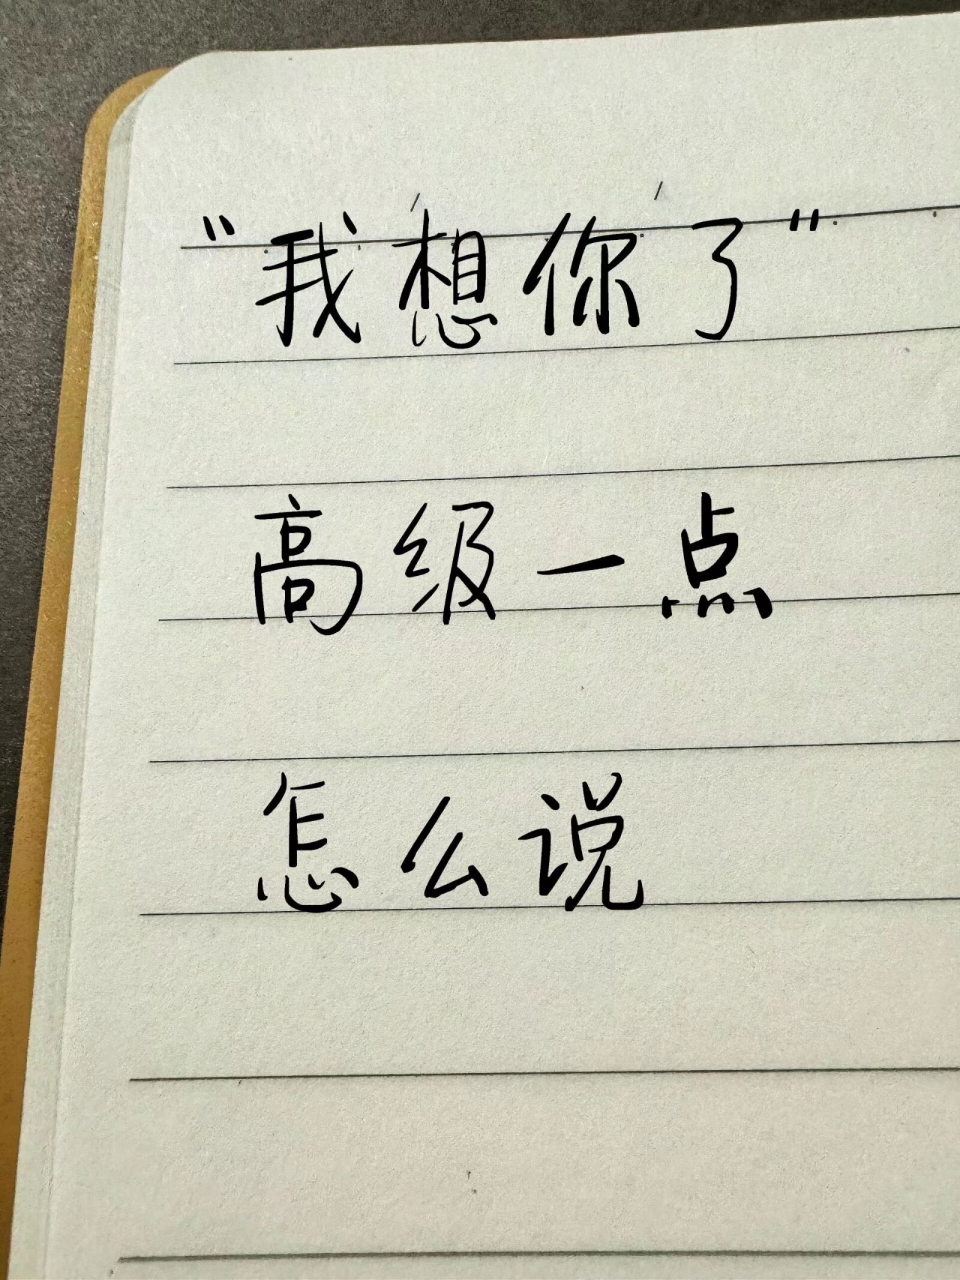 “我想你了”
高级一点
怎么说